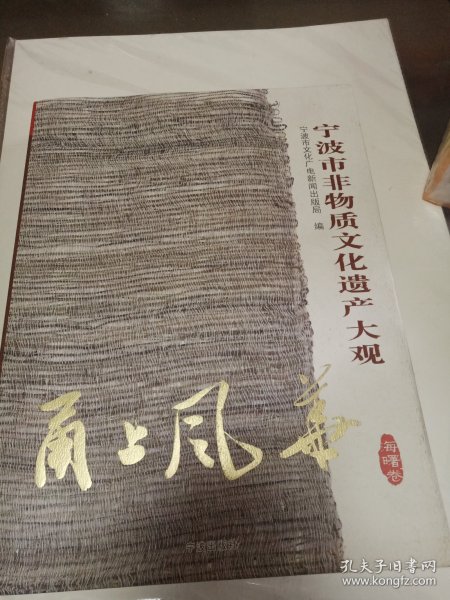 宁波市非物质文化遗产大观
宁波市文化广电新闻出版局 编
甬上风华
海曙卷
宁波出版社
孔夫子旧书网
www.kongfz.com